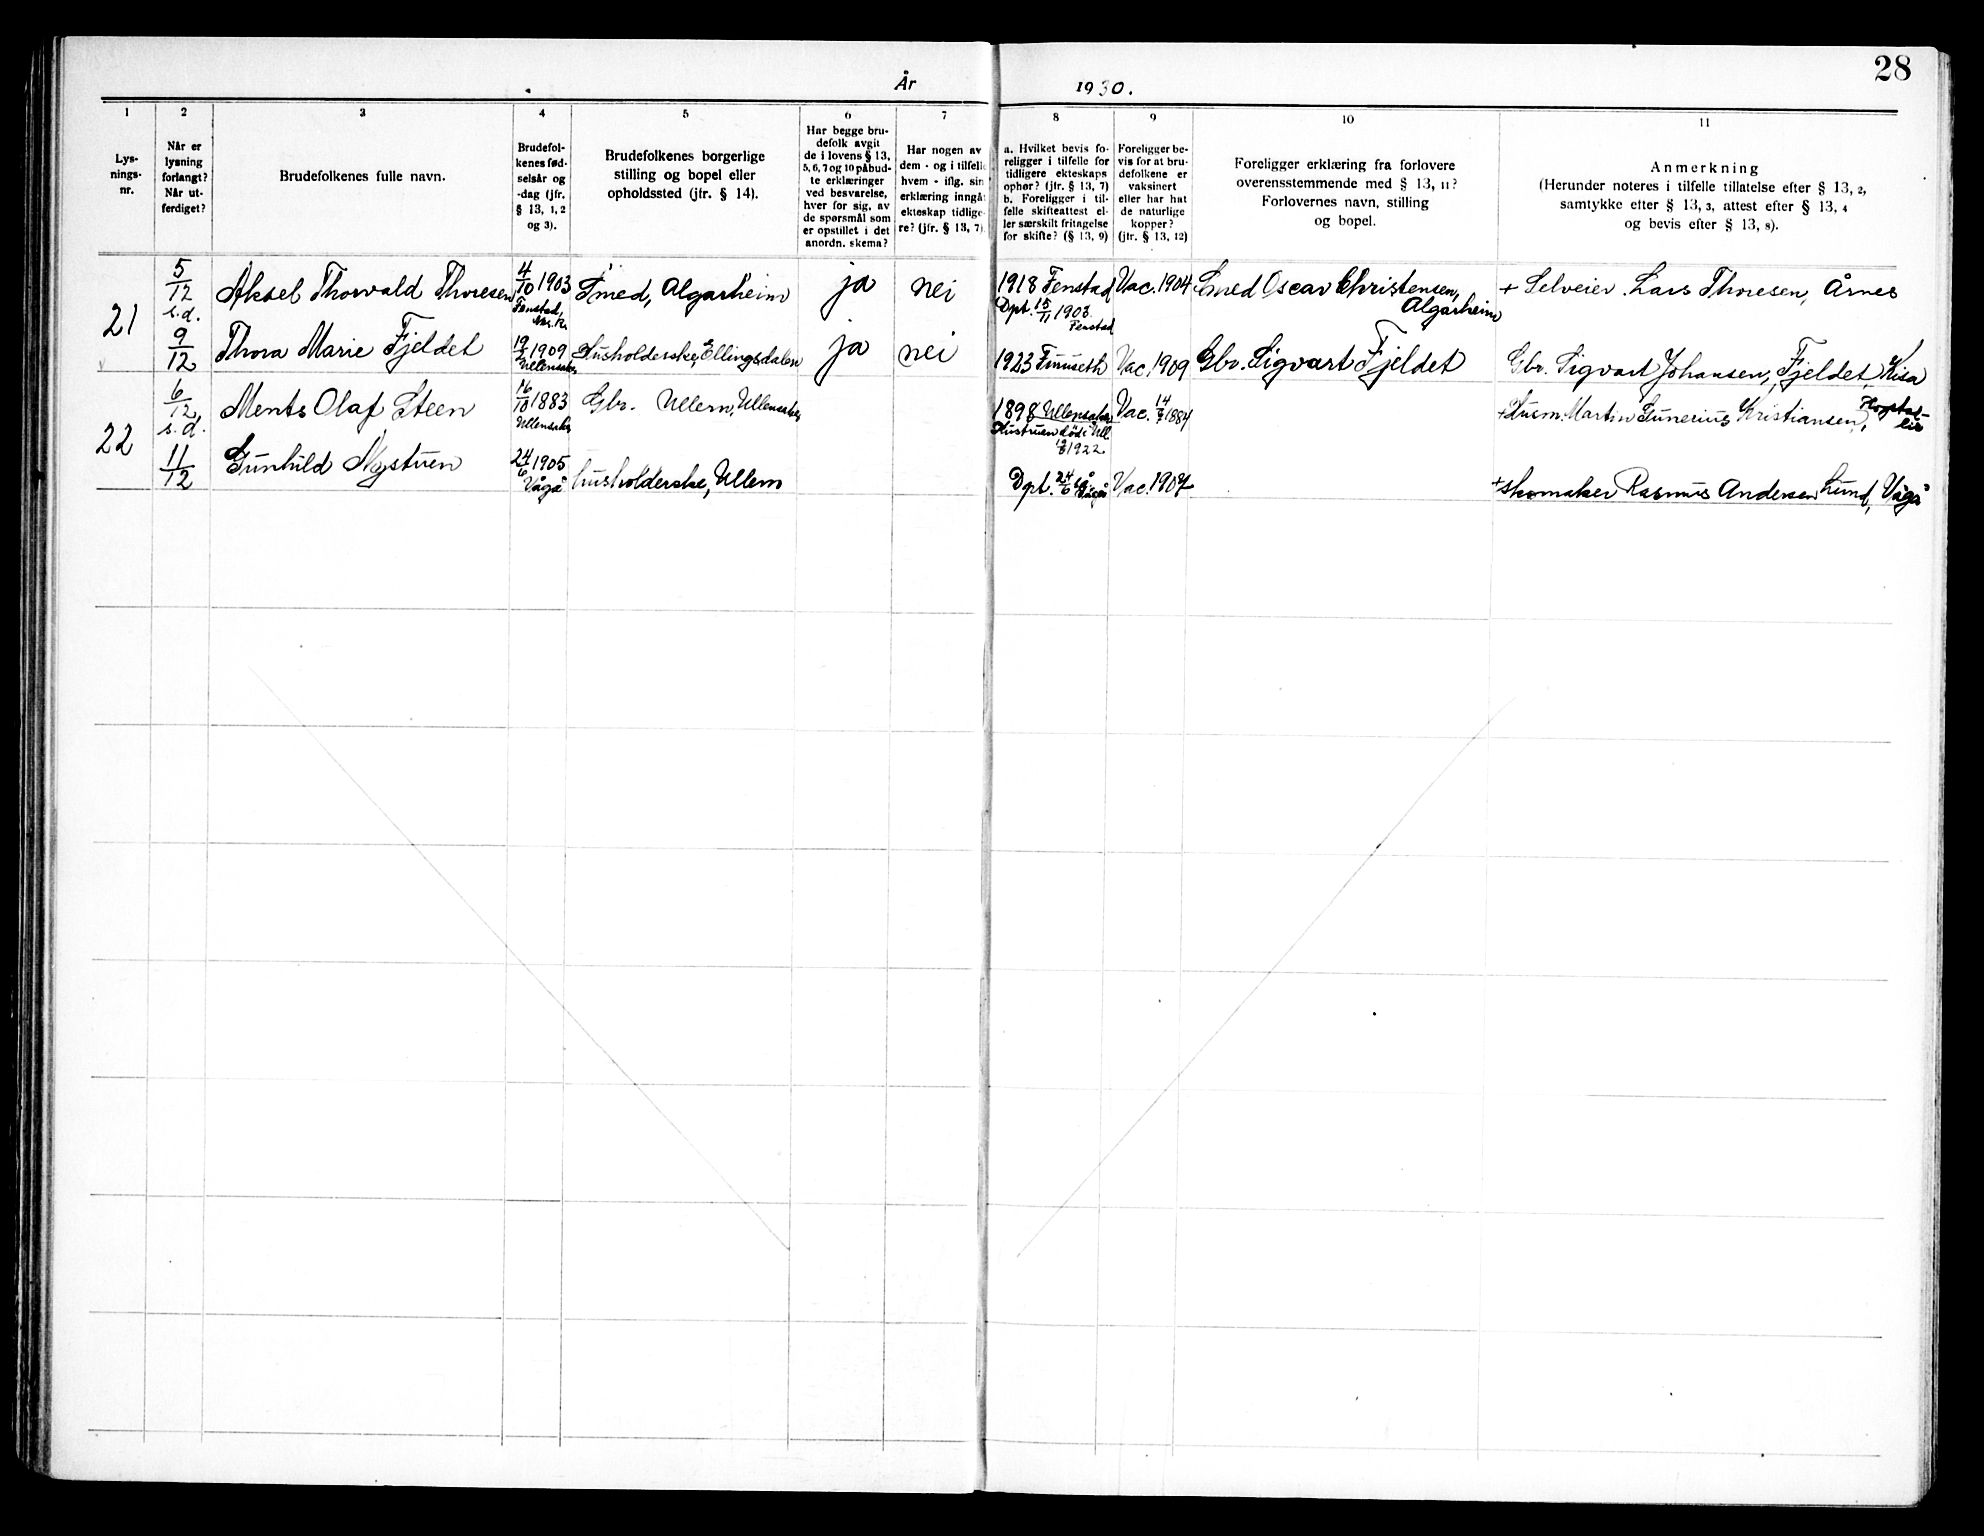 28
År 1930.
1 2 3 4 5 6 7 8 9 10 11
Lys-
nings-
nr.
Når er
lysning
forlangt?
Når ut-
ferdiget?
Brudefolkenes fulle navn.
Brudefol-
kenes fød-
selsår og
-dag (jfr.
§ 13, 1, 2
og 3).
Brudefolkenes borgerlige
stilling og bopel eller
opholdssted (jfr. § 14).
Har begge bru-
defolk avgit
de i lovens § 13,
5, 6, 7 og 10 påbud-
te erklæringer
ved besvarelse,
hver for sig, av
de spørsmål som
er opstillet i det
anordn. skema?
Har nogen av
dem - og i tilfelle
hvem - iflg. sin
erklæring inngå
ekteskap tidlige-
re? (jfr. § 13, 7)
a. Hvilket bevis fo-
religger i tilfelle for
tidligere ekteskaps
ophør? (jfr. § 13, 7)
b. Foreligger i til-
felle skifteattest el-
ler særskilt fritagelse
for skifte? (§ 13, 9)
Foreligger be-
vis for at bru-
defolkene er
vaksinert
eller har hat
de naturlige
kopper?
(jfr. § 13, 12)
Foreligger erklæring fra forlovere
overensstemmende med § 13, 11?
Forlovernes navn, stilling
og bopel.
Anmerkning
(Herunder noteres i tilfelle tillatelse efter § 13, 2,
samtykke efter § 13, 3, attest efter § 13, 4
og bevis efter § 13, 8).
21
5/12 s.d. Aksel Thorvald Thoresen 4/10 1903 Fenstad, Nes. R. Smed, Algarheim ja nei 1918 Fenstad Vac. 1904 Smed Oscar Christensen, Algarheim + Selveier Lars Thoresen, Årnes
Dpt. 15/11 1903 Fenstad
9/12 Thora Marie Fjeldet 19/ 1909 Ullensaker Husholderske, Ellingsdalen ja nei 1923 Furuseth Vac. 1909 Gbr. Sigvart Fjeldet Gbr. Sigvart Johansen, Fjeldet, Kisa
22
6/12 s.d. Ments Olaf Steen 16/10 1883 Ullensaker Gbr. Ullern, Ullensaker 1898 Ullensaker Vac. 14/ 1884 + Husm. Martin Gunerius Kristiansen,
Hustruen død i Ull.
1922
11/12 Gunhild Nystuen 24/6 1905 Vågå husholderske, Ullern Dpt. 24/6 Vågå Vac. 1907 + skomaker Rasmus Andersen Lund, Vågå